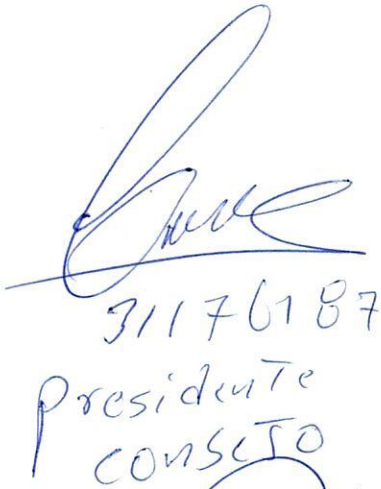 31176187
Presidente
conseJo